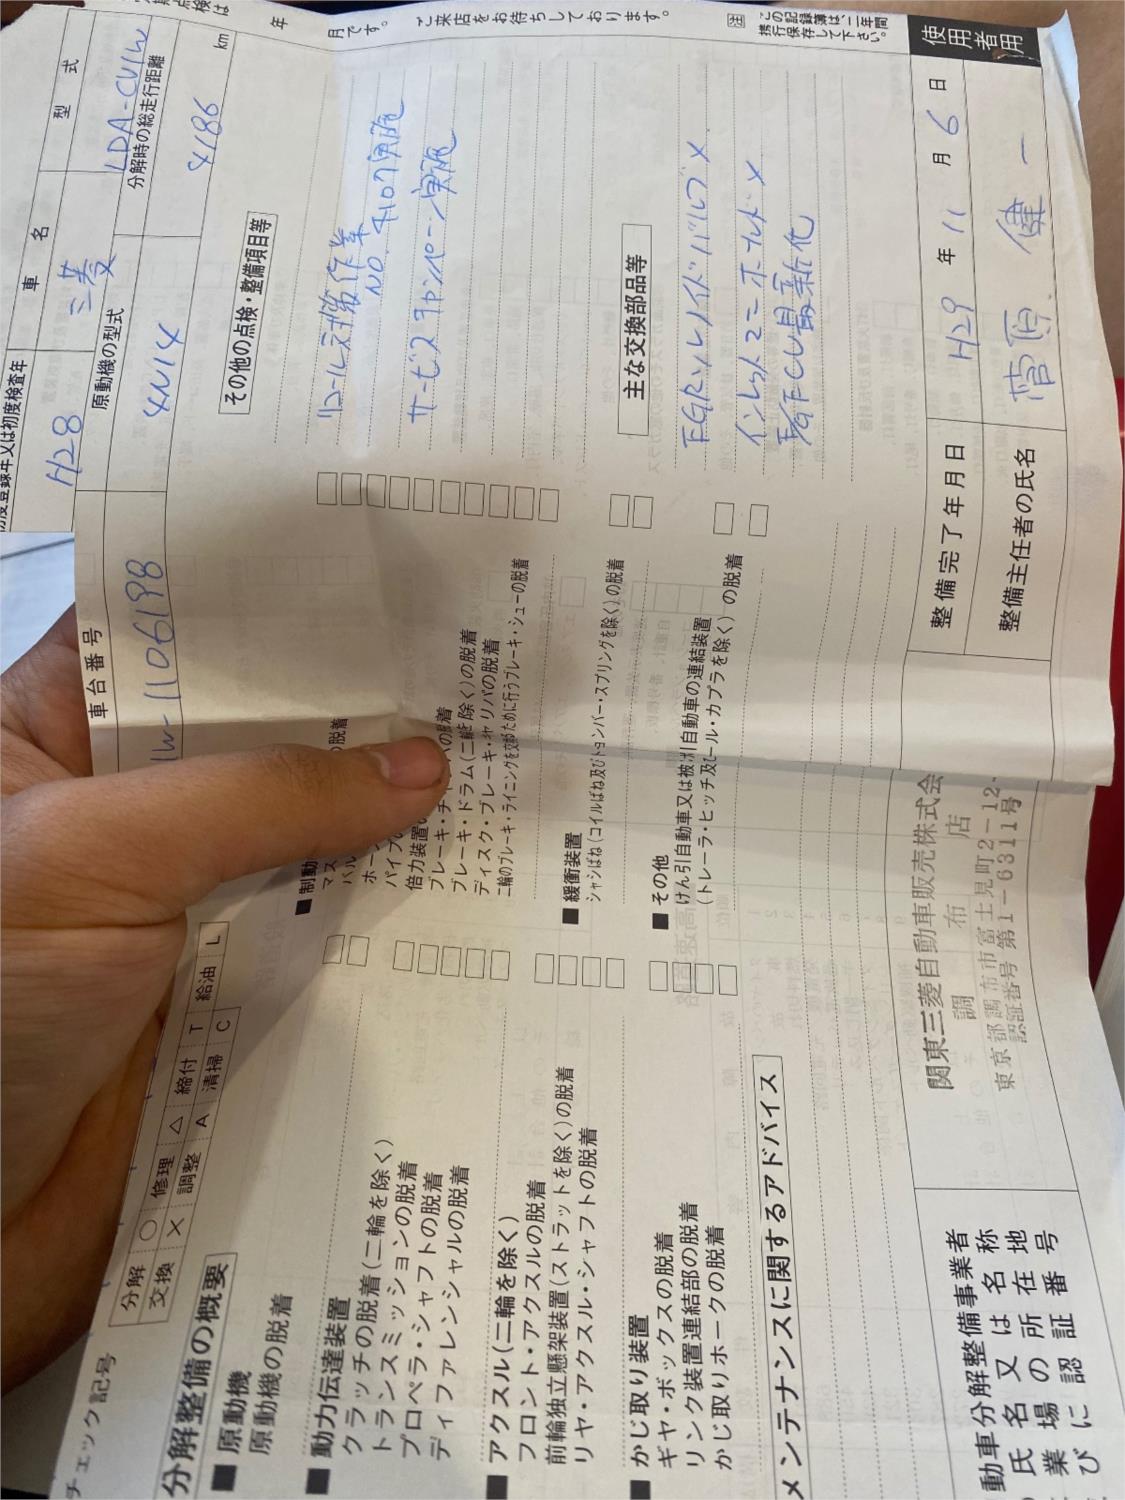 ご来店をお待ちしております。
月です。
年
注
この記録簿は、二年間
携行保存して下さい。
使用者用
車名
三菱
型式
LDA-CV1W
H28
原動機の型式
4N14
分解時の総走行距離
4186 km
車台番号
1W-1106198
チェック記号
分解 ○ 修理 △ 締付 T 給油 L
交換 × 調整 A 清掃 C
分解整備の概要
■原動機
原動機の脱着
■動力伝達装置
クラッチの脱着(二輪を除く)
トランスミッションの脱着
プロペラ・シャフトの脱着
ディファレンシャルの脱着
■アクスル(二輪を除く)
フロント・アクスルの脱着
前輪独立懸架装置(ストラットを除く)の脱着
リヤ・アクスル・シャフトの脱着
■かじ取り装置
ギヤ・ボックスの脱着
リンク装置連結部の脱着
かじ取りホークの脱着
■制動
の脱着
ブレーキ・ドラム(二輪を除く)の脱着
ディスク・ブレーキ・キャリパの脱着
二輪のブレーキ・ライニングを交換するために行うブレーキ・シューの脱着
■緩衝装置
シャシばね(コイルばね及びトーションバー・スプリングを除く)の脱着
■その他
けん引自動車又は被けん引自動車の連結装置
(トレーラ・ヒッチ及びルール・カプラを除く)の脱着
その他の点検・整備項目等
リコール対策作業
NO. 4107実施
サービスキャンペーン実施
主な交換部品等
EGRソレノイドバルブ ×
インレットマニホルド ×
E/GECU最新化
メンテナンスに関するアドバイス
関東三菱自動車販売株式会
調布店
東京都調布市富士見町2-12-
認証番号 第1-6311号
整備完了年月日
H29年11月6日
整備主任者の氏名
菅原 健一